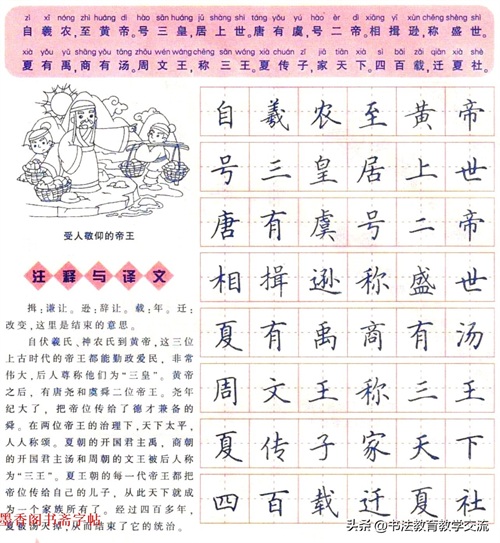 zì xī nóng zhì huáng dì hào sān huáng jū shàng shì táng yǒu yú hào èr dì xiāng yī xùn chēng shèng shì
自羲农,至黄帝。号三皇,居上世。唐有虞,号二帝。相揖逊,称盛世。
xià yǒu yǔ shāng yǒu tāng zhōu wén wáng chēng sān wáng xià chuán zǐ jiā tiān xià sì bǎi zǎi qiān xià shè
夏有禹,商有汤。周文王,称三王。夏传子,家天下。四百载,迁夏社。
受人敬仰的帝王
注释与译文
揖:谦让。逊:辞让。载:年。迁:
改变,这里是结束的意思。
自伏羲氏、神农氏到黄帝,这三位
上古时代的帝王都能勤政爱民,非常
伟大,后人尊称他们为“三皇”。黄帝
之后,有唐尧和虞舜二位帝王。尧年
纪大了,把帝位传给了德才兼备的
舜。在两位帝王的治理下,天下太平,
人人称颂。夏朝的开国君主禹,商朝
的开国君主汤和周朝的文王被后人称
为“三王”。夏王朝的每一代帝王都把
帝位传给自己的儿子,从此天下就成
为一个家族所有了。经过四百多年,
夏被汤灭掉,从而结束了它的统治。
自羲农至黄帝
号三皇居上世
唐有虞号二帝
相揖逊称盛世
夏有禹商有汤
周文王称三王
夏传子家天下
四百载迁夏社
墨香阁书斋字帖
头条@书法教育教学交流